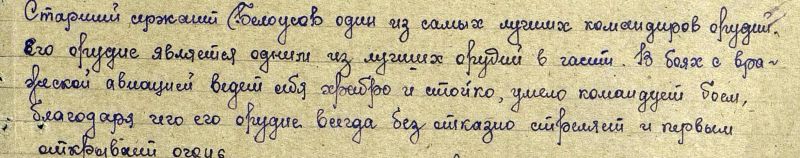 Старший сержант Белоусов один из самых лучших командиров орудий.
Его орудие является одним из лучших орудий в части. В боях с вра-
жеской авиацией ведет себя храбро и стойко, умело командует боем,
благодаря чего его орудие всегда без отказно стреляет и первым
открывает огонь